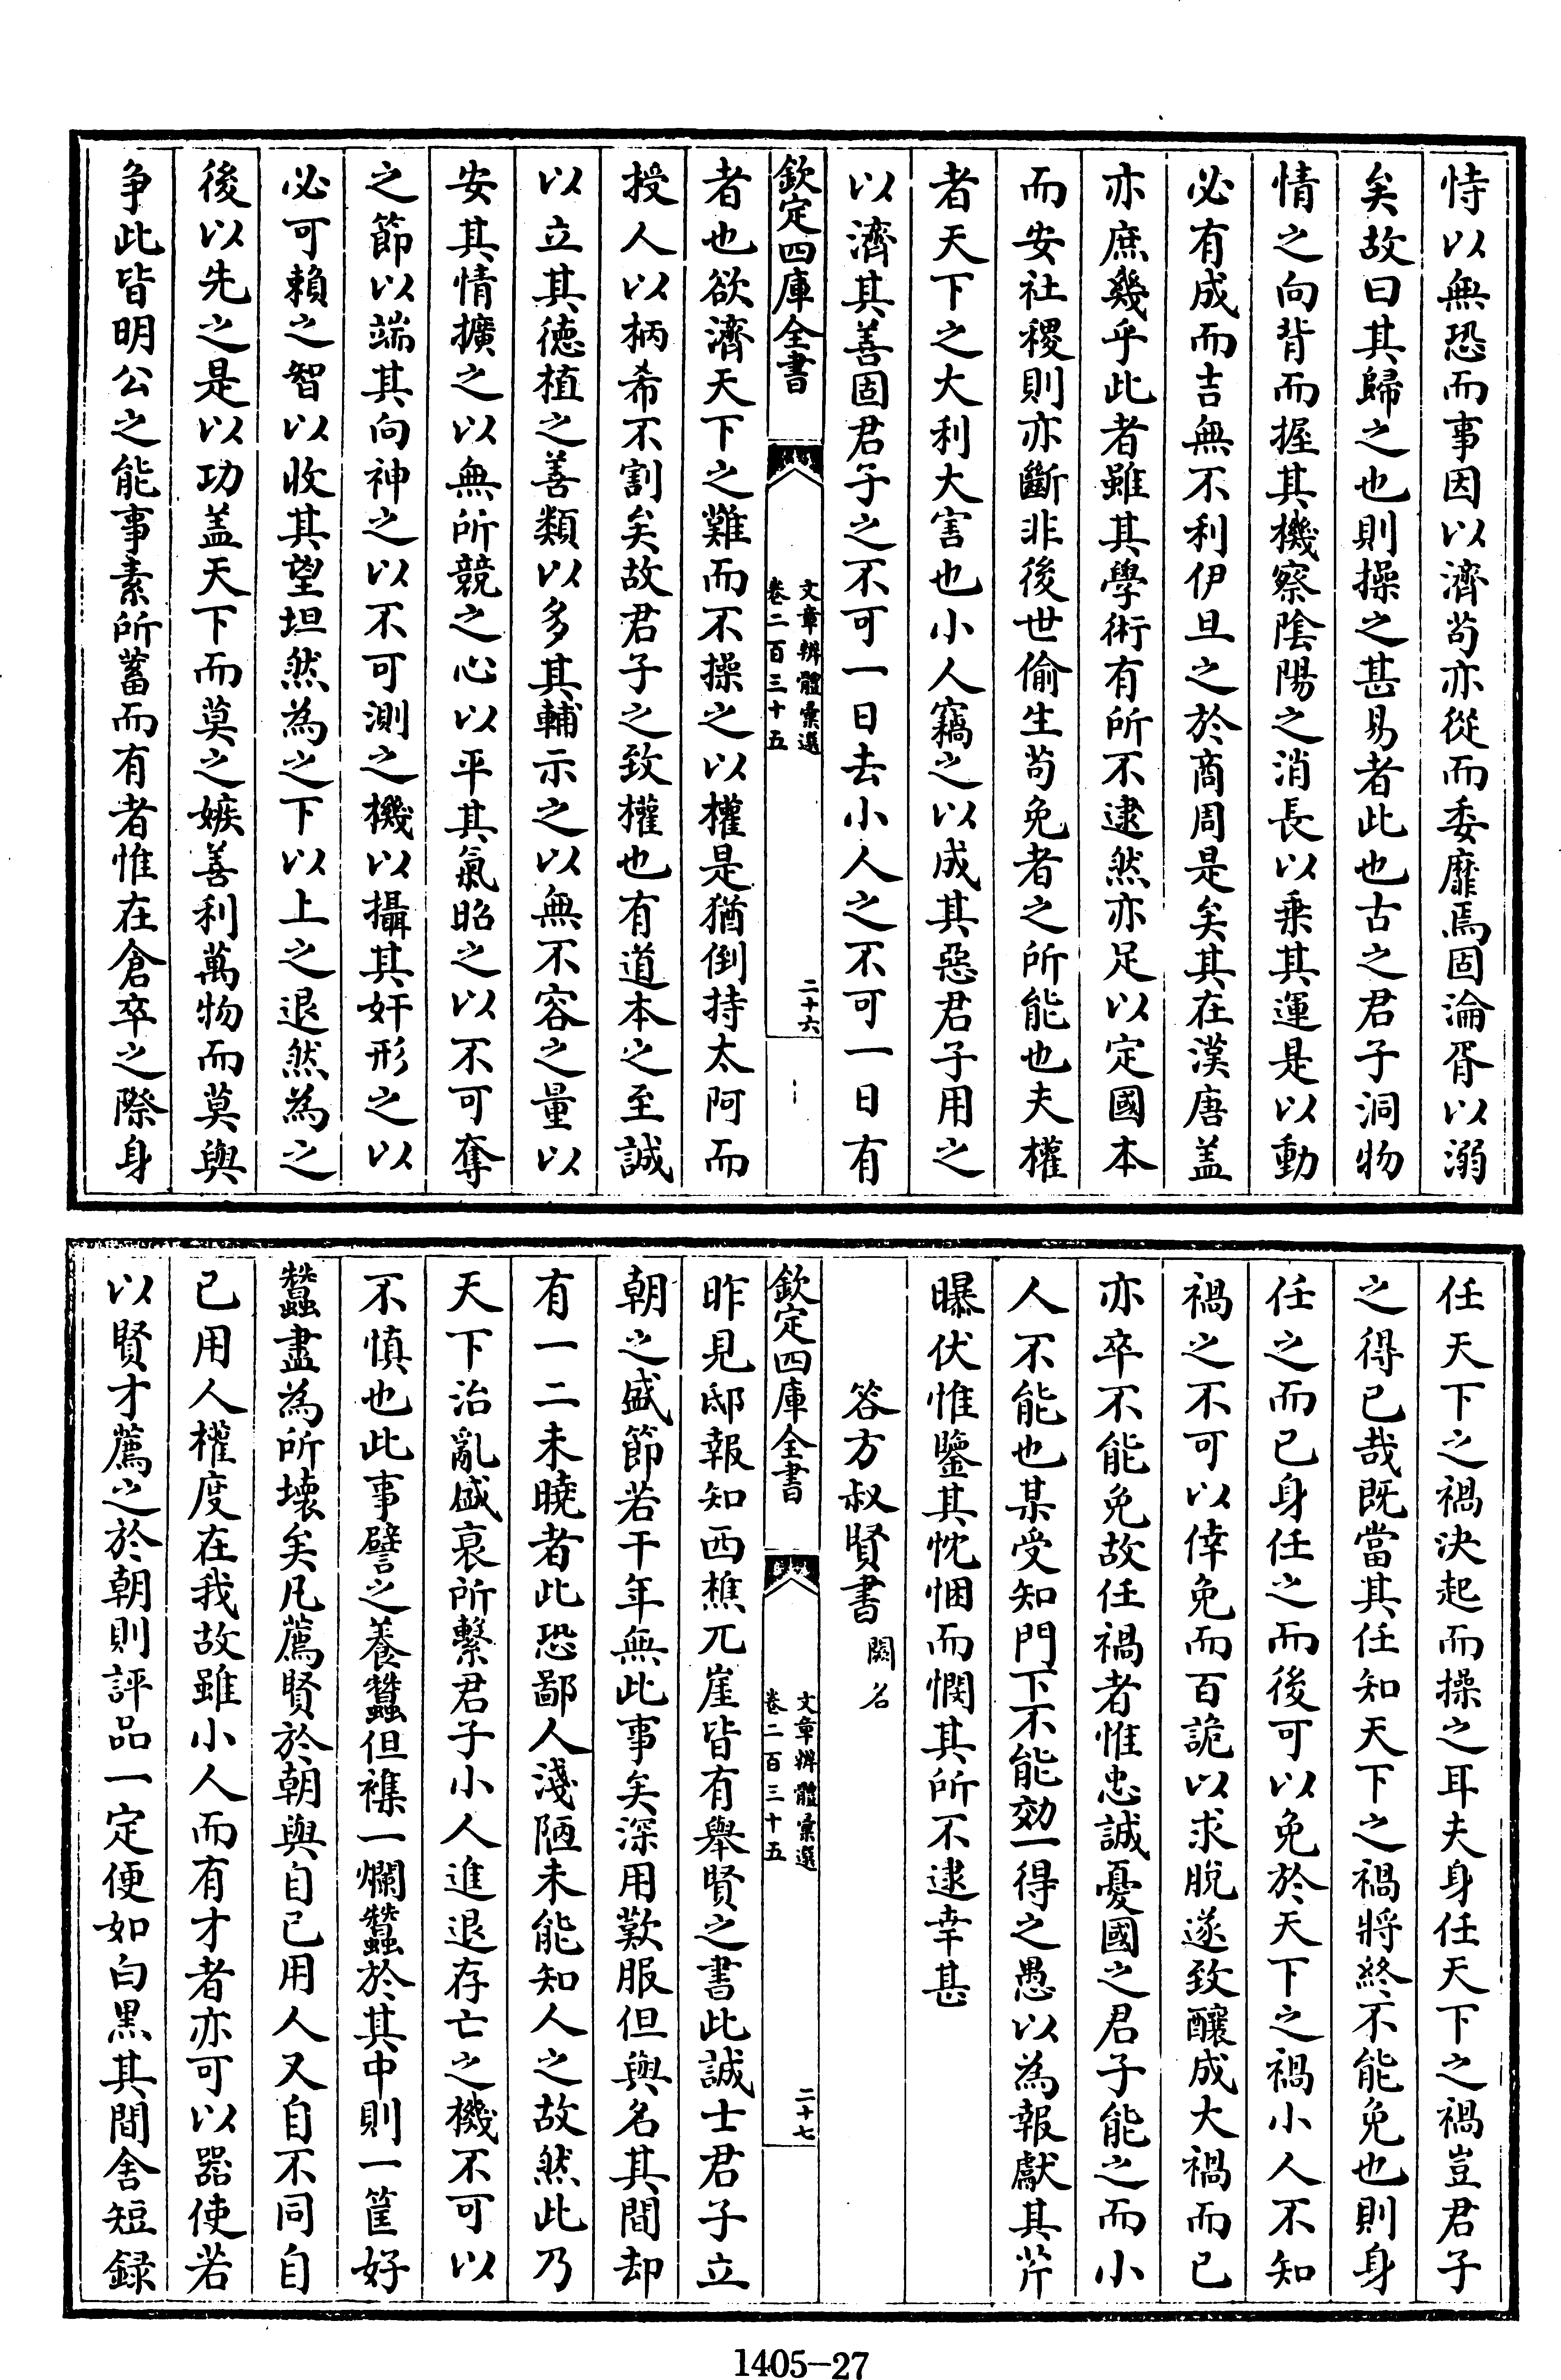 恃以無恐而事因以濟茍亦從而委靡焉固淪胥以溺
矣故曰其歸之也則操之甚易者此也古之君子洞物
情之向背而握其機察隂陽之消長以乗其運是以動
必有成而吉無不利伊旦之於商周是矣其在漢唐盖
亦庶幾乎此者雖其學術有所不逮然亦足以定國本
而安社稷則亦斷非後世偷生茍免者之所能也夫權
者天下之大利大害也小人竊之以成其惡君子用之
以濟其善固君子之不可一日去小人之不可一日有
欽定四庫全書
文章辨體彙選
卷二百三十五
二十六
者也欲濟天下之難而不操之以權是猶倒持太阿而
授人以柄希不割矣故君子之致權也有道本之至誠
以立其徳植之善類以多其輔示之以無不容之量以
安其情擴之以無所競之心以平其氣昭之以不可奪
之節以端其向神之以不可測之機以攝其奸形之以
必可賴之智以收其望坦然為之下以上之退然為之
後以先之是以功盖天下而莫之嫉善利萬物而莫與
争此皆明公之能事素所蓄而有者惟在倉卒之際身
任天下之禍決起而操之耳夫身任天下之禍豈君子
之得已哉既當其任知天下之禍將終不能免也則身
任之而已身任之而後可以免於天下之禍小人不知
禍之不可以倖免而百詭以求脱遂致釀成大禍而已
亦卒不能免故任禍者惟忠誠憂國之君子能之而小
人不能也某受知門下不能効一得之愚以為報獻其芹
曝伏惟鑒其忱悃而憫其所不逮幸甚
答方叔賢書 闕名
欽定四庫全書
文章辨體彙選
卷二百三十五
二十七
昨見邸報知西樵兀崖皆有舉賢之書此誠士君子立
朝之盛節若干年無此事矣深用歎服但與名其間却
有一二未曉者此恐鄙人淺陋未能知人之故然此乃
天下治亂盛衰所繫君子小人進退存亡之機不可以
不慎也此事譬之養蠶但襍一爛蠶於其中則一筐好
蠶盡為所壞矣凡薦賢於朝與自己用人又自不同自
已用人權度在我故雖小人而有才者亦可以器使若
以賢才薦之於朝則評品一定便如白黒其間舍短録
1405-27